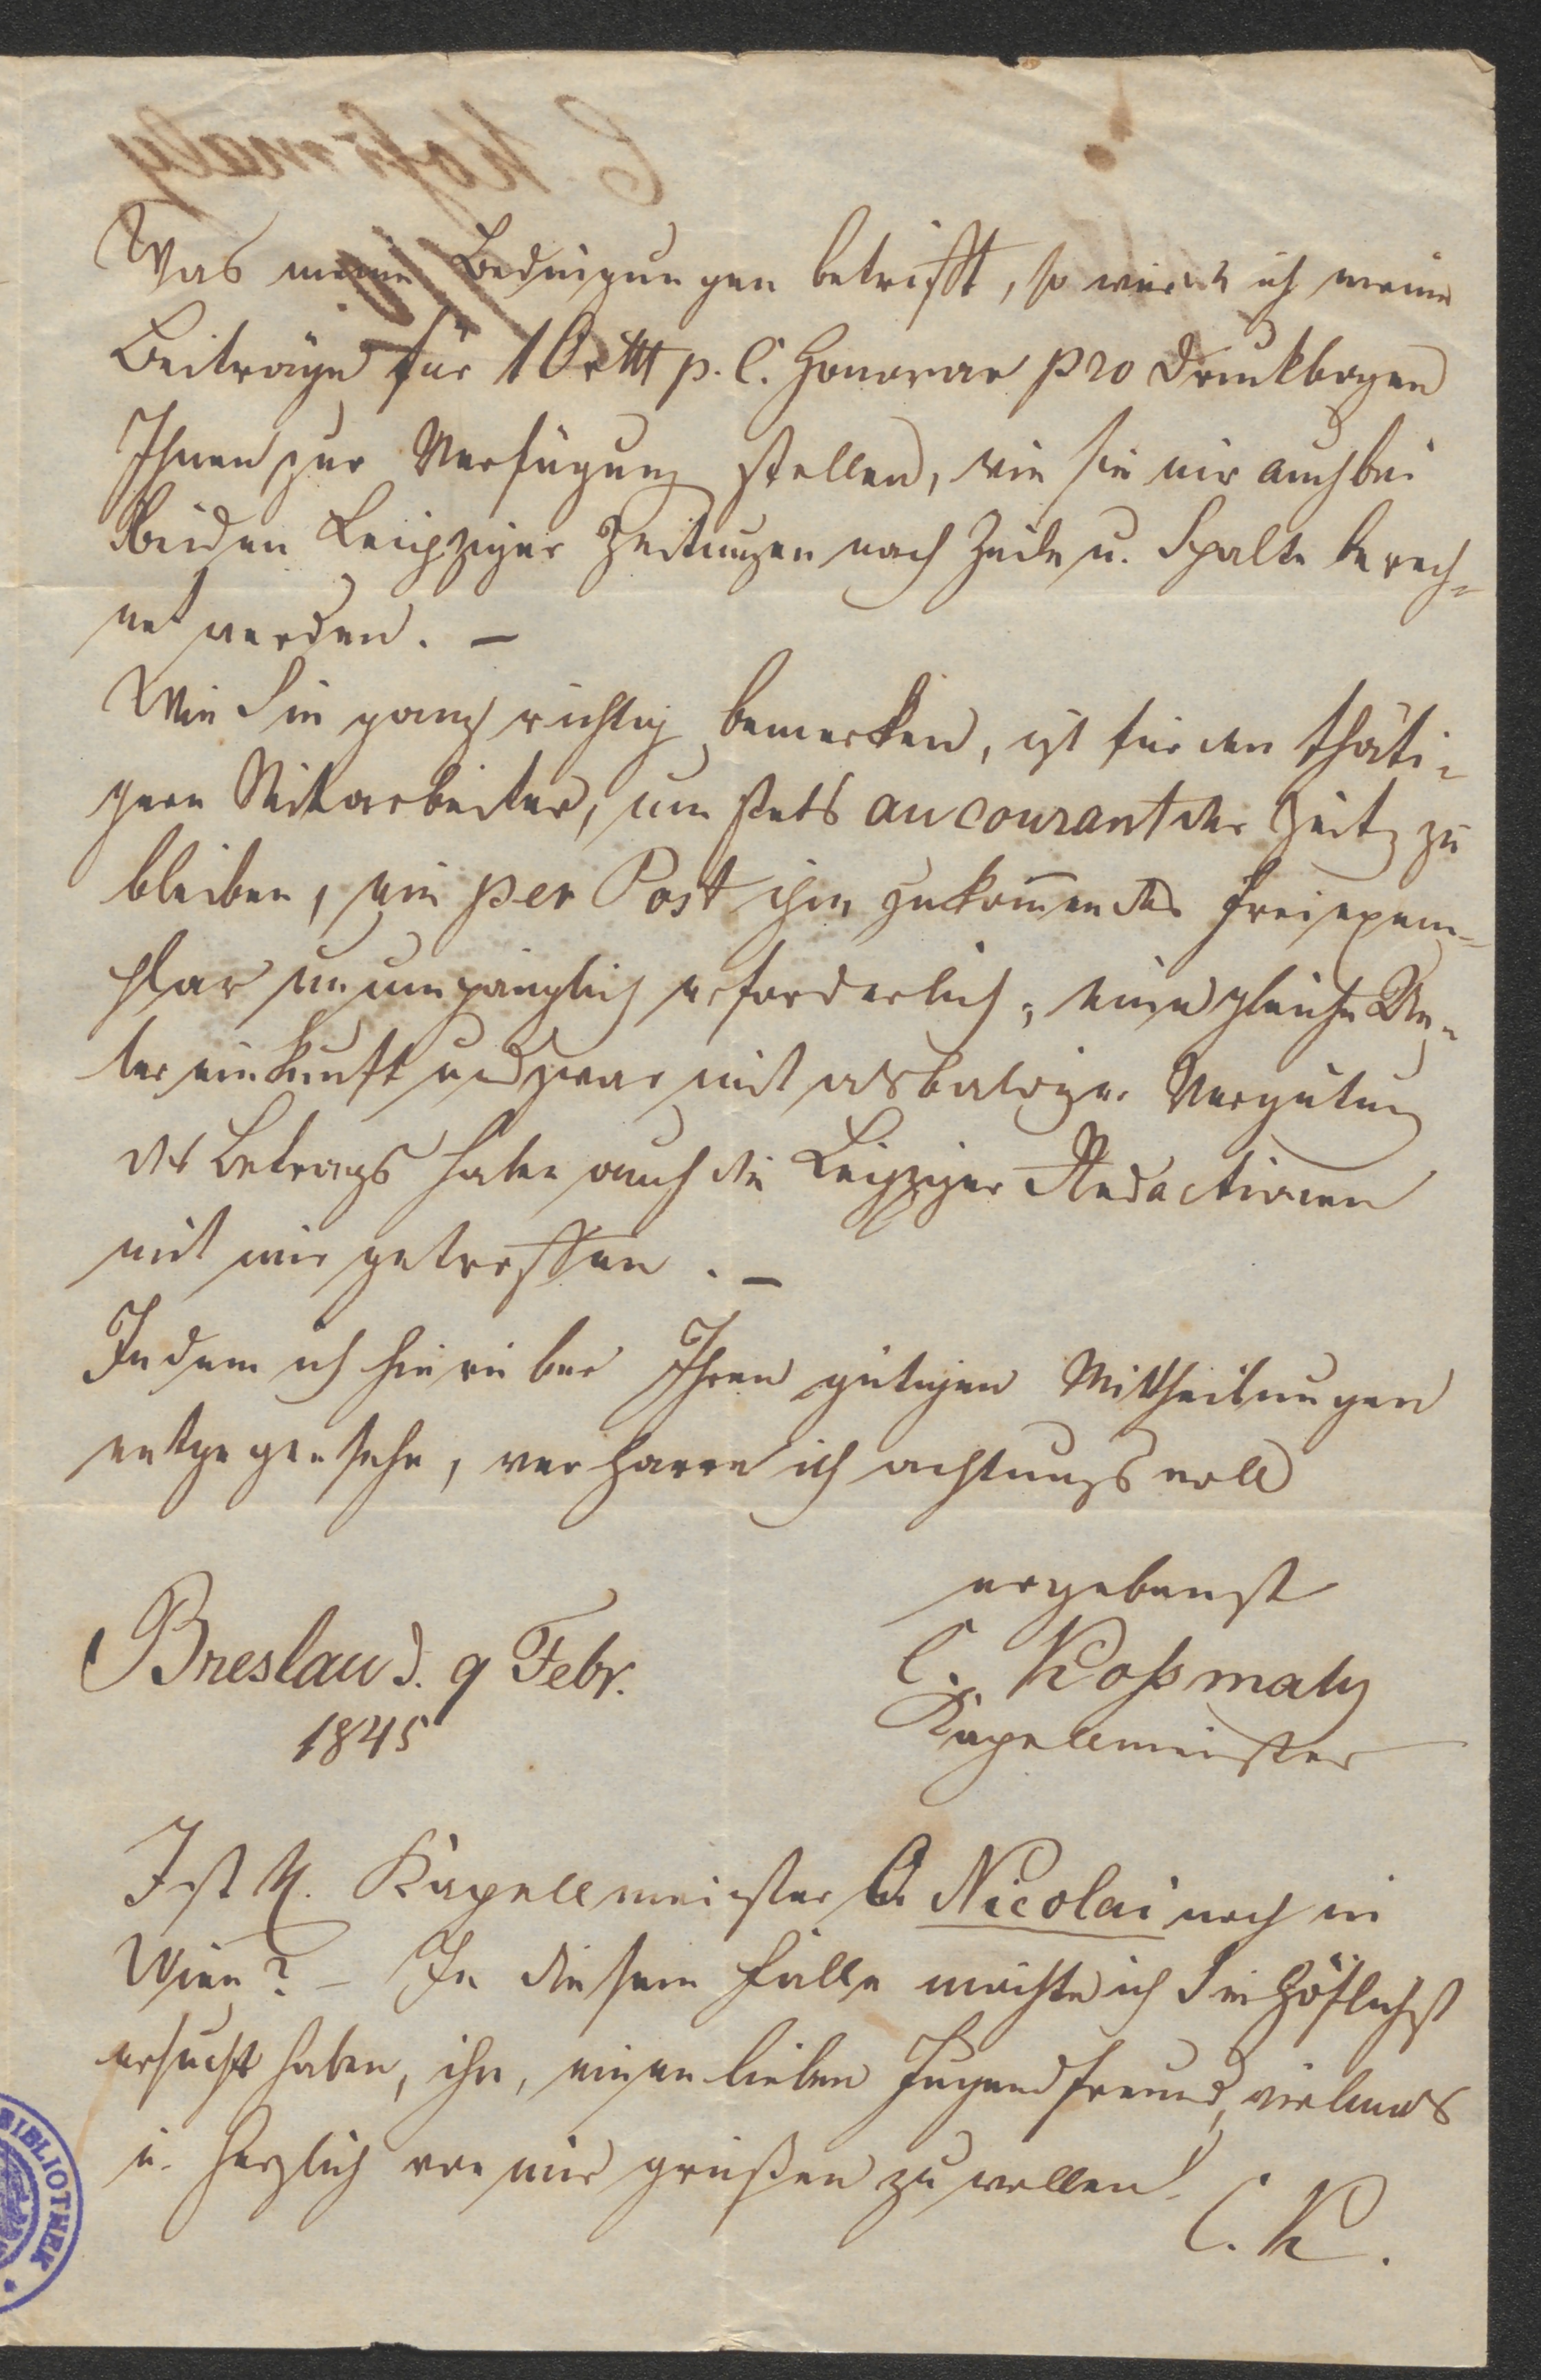 C. Koßmaly
Was meine Bedingungen betrifft, so würde ich meine
Beiträge für 10 rtl p. C. Honorar pro Druckbogen
Ihnen zur Verfügung stellen, wie sie mir auch bei
beiden Leipziger Zeitungen nach Zeile u. Spalte berech=
net werden. –
Wie Sie ganz richtig bemerken, ist für den thäti=
gern Mitarbeiter, um stets au courant der Zeitg zu
bleiben, ein per Post ihm zukom̅endes Freiexem=
plar unumgänglich erforderlich; eine gleiche Ue=
bereinkunft und zwar mit alsbaldiger Vergütung
des Betrags haben auch die Leipziger Redactionen
mit mir getroffen. –
Indem ich hierüber Ihren gütigen Mittheilungen
entgegensehe, verharre ich achtungsvoll
ergebenst
Breslau d. 9 Febr.
1845
C. Koßmaly
Kapellmeister
Ist H. Kapellmeister O. Nicolai noch in
Wien? – In diesem Falle möchte ich Sie höflichst
ersucht haben, ihn, einen lieben Jugendfreund, vielmals
u. herzlich von mir grüßen zu wollen!
C. K.
BIBLIOTHEK